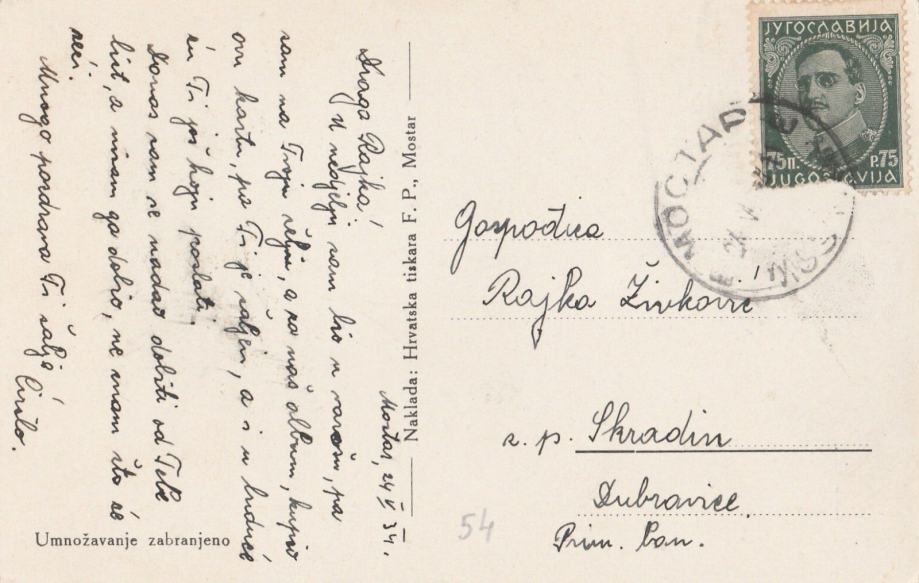 Mostar, 24 V 34.
Draga Rajka!
U nedjelju sam bio u varoši, pa
sam na Tvoju želju, a za naš album, kupio
ovu kartu, pa Ti je šaljem, a i u buduće
ću Ti još koju poslati.
Donas sam se nadao dobiti od Tebe
list, a nisam ga dobio, ne znam što će
reći.
Mnogo pozdrava Ti šalje
Ćirilo.
Umnožavanje zabranjeno
Naklada: Hrvatska tiskara F. P., Mostar
ЈУГОСЛАВИЈА
75 П. P. 75
JUGOSLAVIJA
МОСТАР
Gospođica
Rajka Živković
z. p. Skradin
Dubravice
Prim. ban.
54